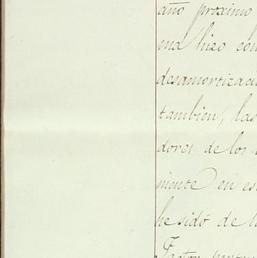 año proximo
ma hizo con
desamortizac
tambien, las
dores de los
mente en es
he sido de l